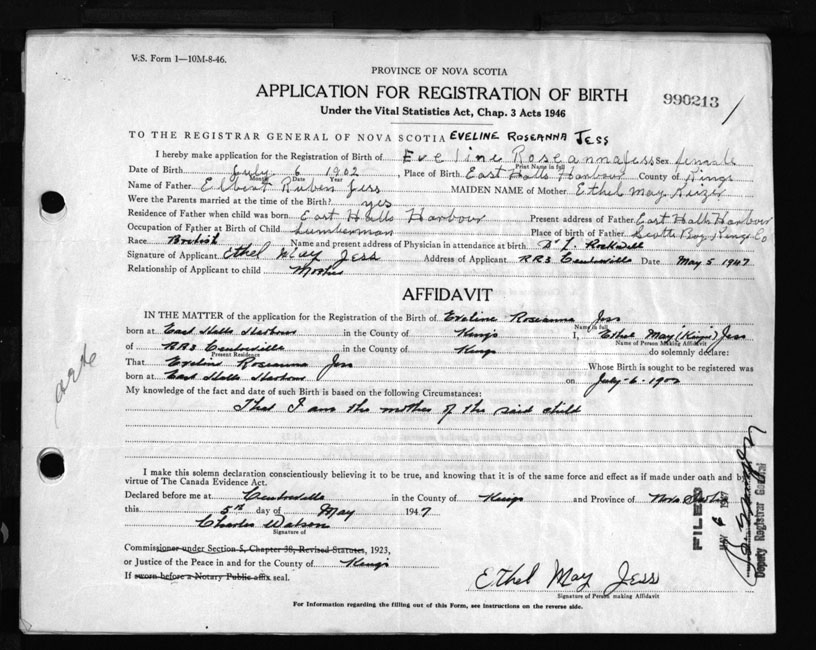 V.S. Form 1—10M-8-46.
PROVINCE OF NOVA SCOTIA
APPLICATION FOR REGISTRATION OF BIRTH
990213
Under the Vital Statistics Act, Chap. 3 Acts 1946
TO THE REGISTRAR GENERAL OF NOVA SCOTIA EVELINE ROSEANNA JESS
I hereby make application for the Registration of Birth of Eveline Roseanna Jess Sex female
Print Name in full
Date of Birth July 6 1902, Place of Birth East Halls Harbour County of Kings
Month Date Year
Name of Father Elbert Ruben Jess MAIDEN NAME of Mother Ethel May Kizer
Were the Parents married at the time of the Birth? yes
Residence of Father when child was born East Halls Harbour Present address of Father East Halls Harbour
Occupation of Father at Birth of Child Lumberman Place of birth of Father Scotts Bay Kings Co
Race British Name and present address of Physician in attendance at birth Dr
Signature of Applicant Ethel May Jess Address of Applicant RR3 Centreville Date May 5 1947
Relationship of Applicant to child Mother
AFFIDAVIT
IN THE MATTER of the application for the Registration of the Birth of Eveline Roseanna Jess
Name in full
born at East Halls Harbour in the County of Kings I, Ethel May Jess
Name of Person Making Affidavit
of RR3 Centreville in the County of Kings do solemnly declare:
Present Residence
That Eveline Roseanna Jess Whose Birth is sought to be registered was
born at East Halls Harbour on July-6-1902
My knowledge of the fact and date of such Birth is based on the following Circumstances:
That I am the mother of the said child
I make this solemn declaration conscientiously believing it to be true, and knowing that it is of the same force and effect as if made under oath and by
virtue of The Canada Evidence Act.
Declared before me at Centreville in the County of Kings and Province of Nova Scotia
this 5th day of May 1947
Charles Watson
Signature
Commissioner under Section 5, Chapter 38, Revised Statutes, 1923,
or Justice of the Peace in and for the County of Kings
If sworn before a Notary Public affix seal.
Ethel May Jess
Signature of Person making Affidavit
For Information regarding the filling out of this Form, see instructions on the reverse side.
FILED
6 1947
Deputy Registrar General